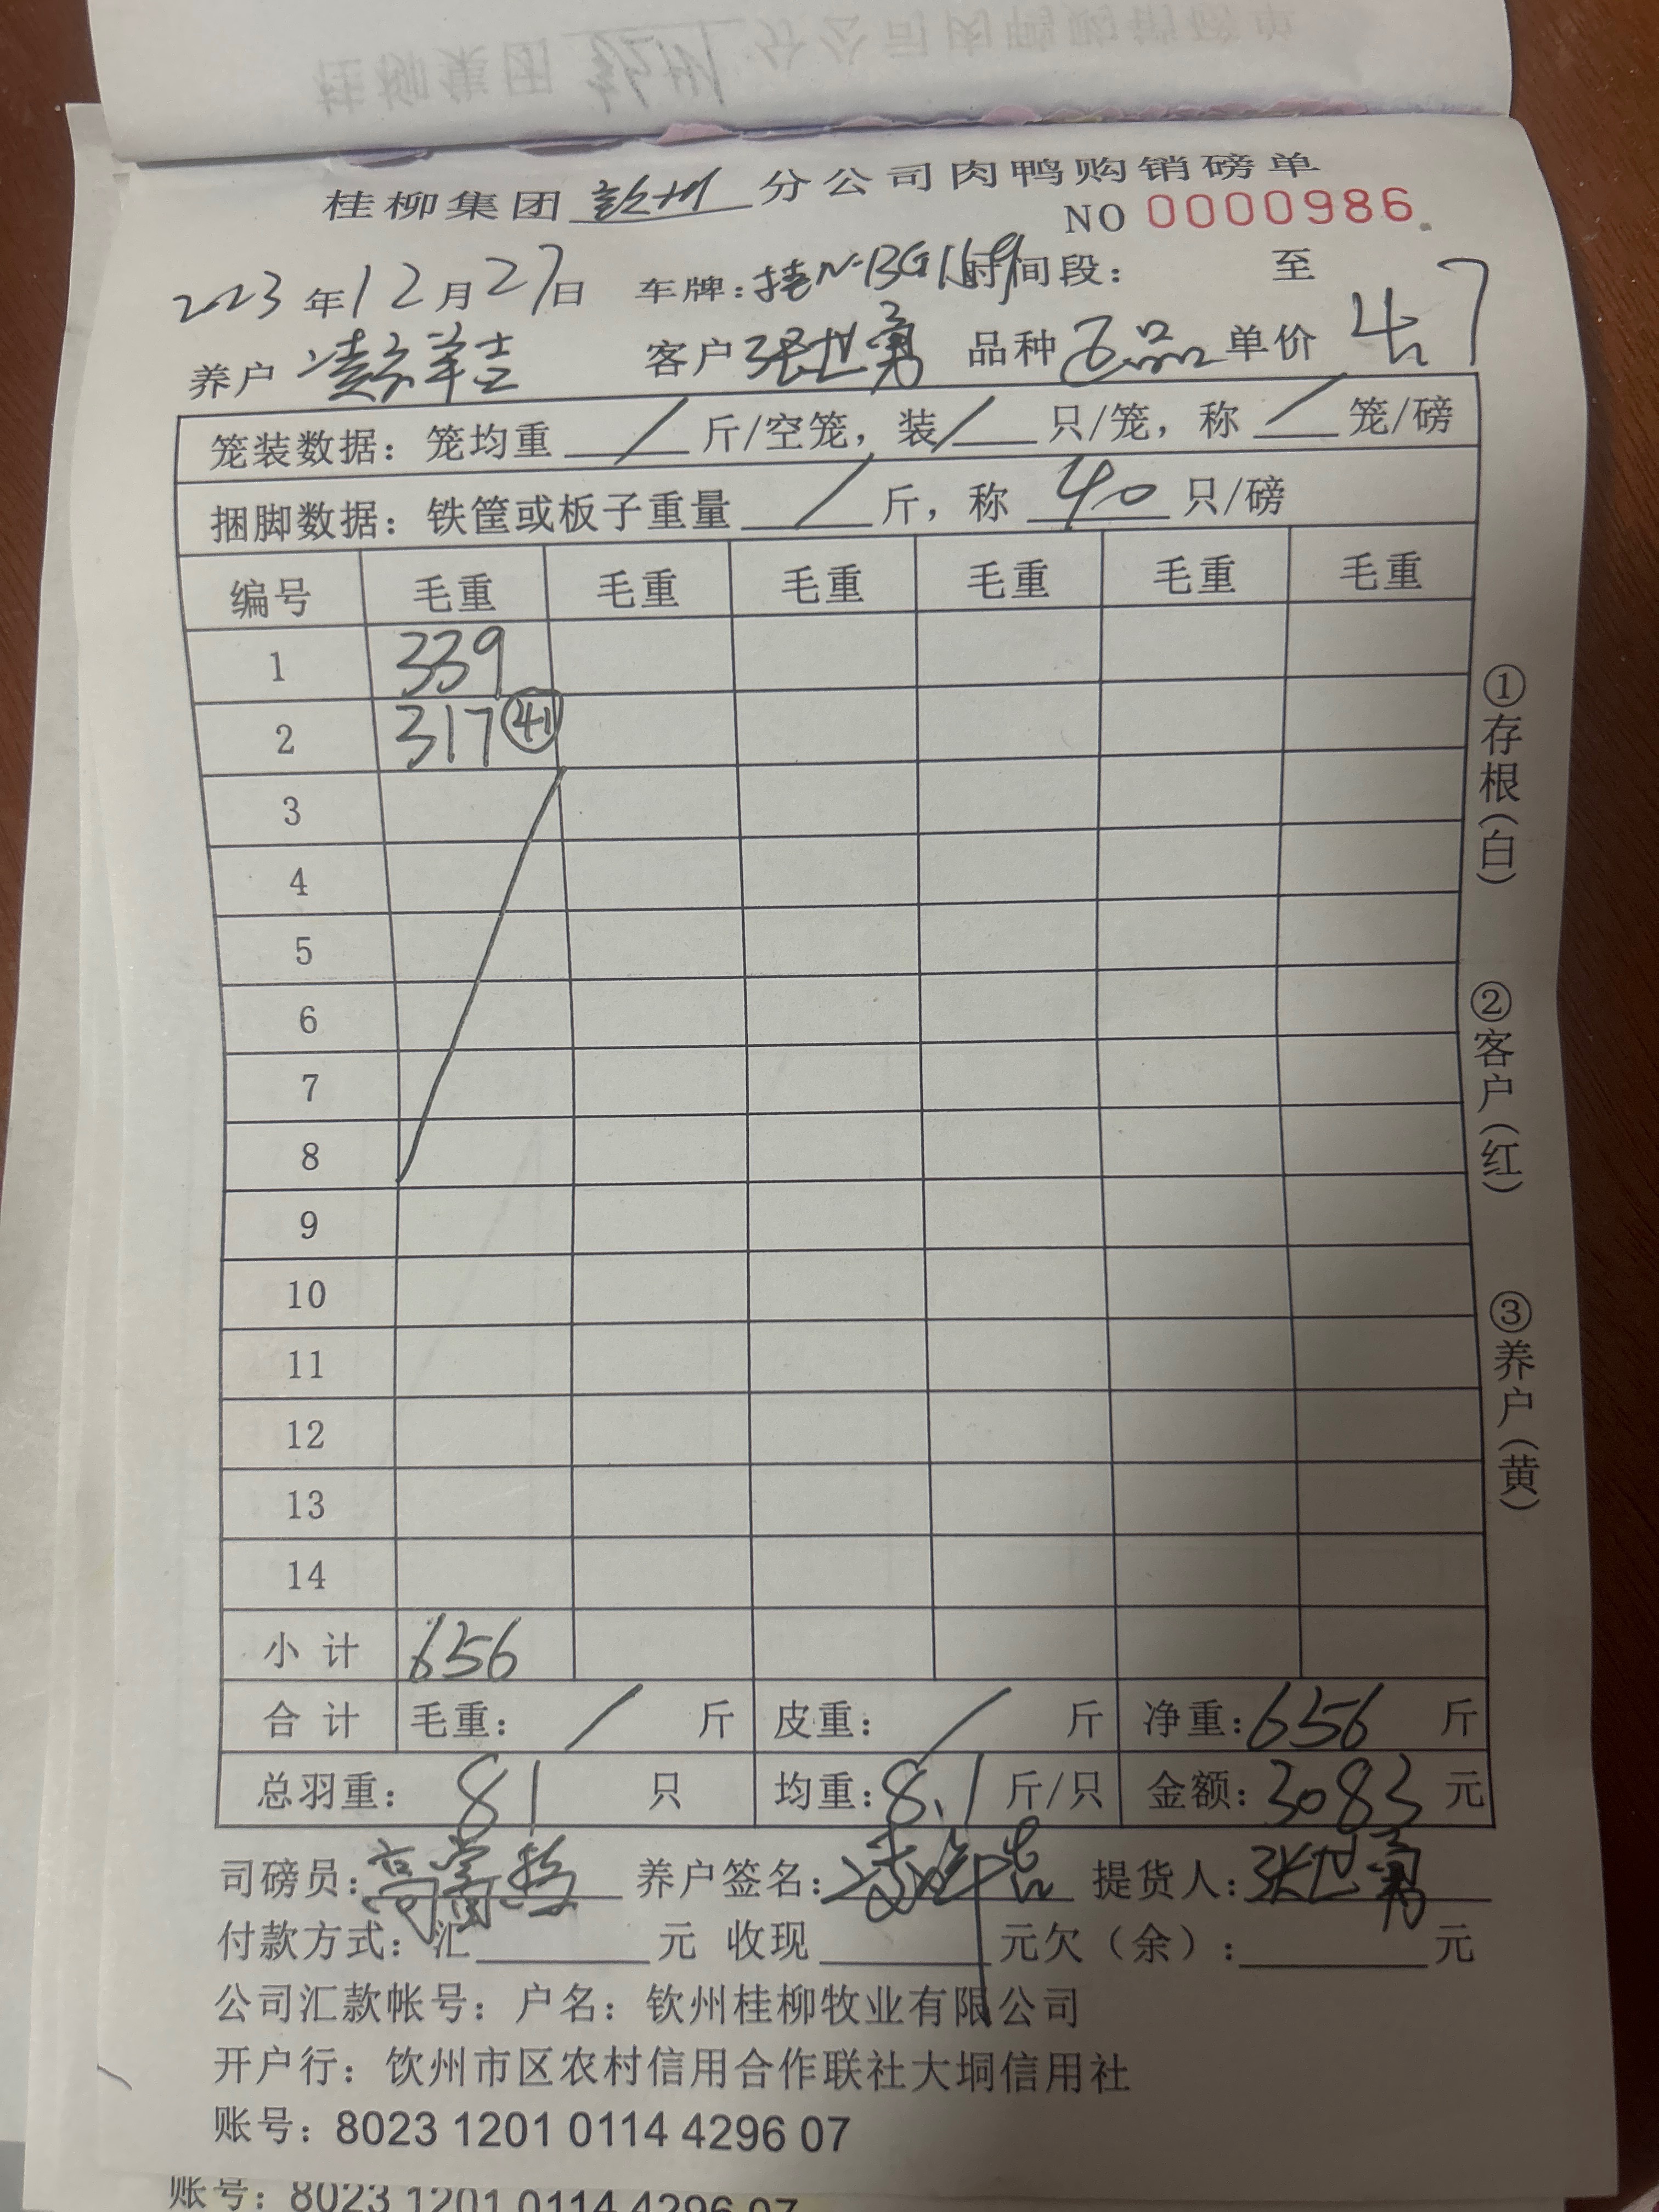 桂柳集团 钦州 分公司肉鸭购销磅单
NO 0000986
2023年12月27日 车牌:桂N·BG1 时间段: 至
养户 凌祥吉 客户 张世勇 品种 品 单价 4.7
笼装数据: 笼均重 / 斤/空笼, 装 / 只/笼, 称 / 笼/磅
捆脚数据: 铁筐或板子重量 / 斤, 称 40 只/磅
编号 毛重 毛重 毛重 毛重 毛重 毛重
1 339
2 317 ㊶
3
4
5
6
7
8
9
10
11
12
13
14
小计 656
合计 毛重: / 斤 皮重: / 斤 净重: 656 斤
总羽重: 81 只 均重: 8.1 斤/只 金额: 3083 元
司磅员: 养户签名: 凌祥吉 提货人: 张世勇
付款方式: 汇 元 收现 元欠(余): 元
公司汇款帐号: 户名: 钦州桂柳牧业有限公司
开户行: 饮州市区农村信用合作联社大垌信用社
账号: 8023 1201 0114 4296 07
账号: 8023 1201 0114 4296 07
①存根(白)
②客户(红)
③养户(黄)